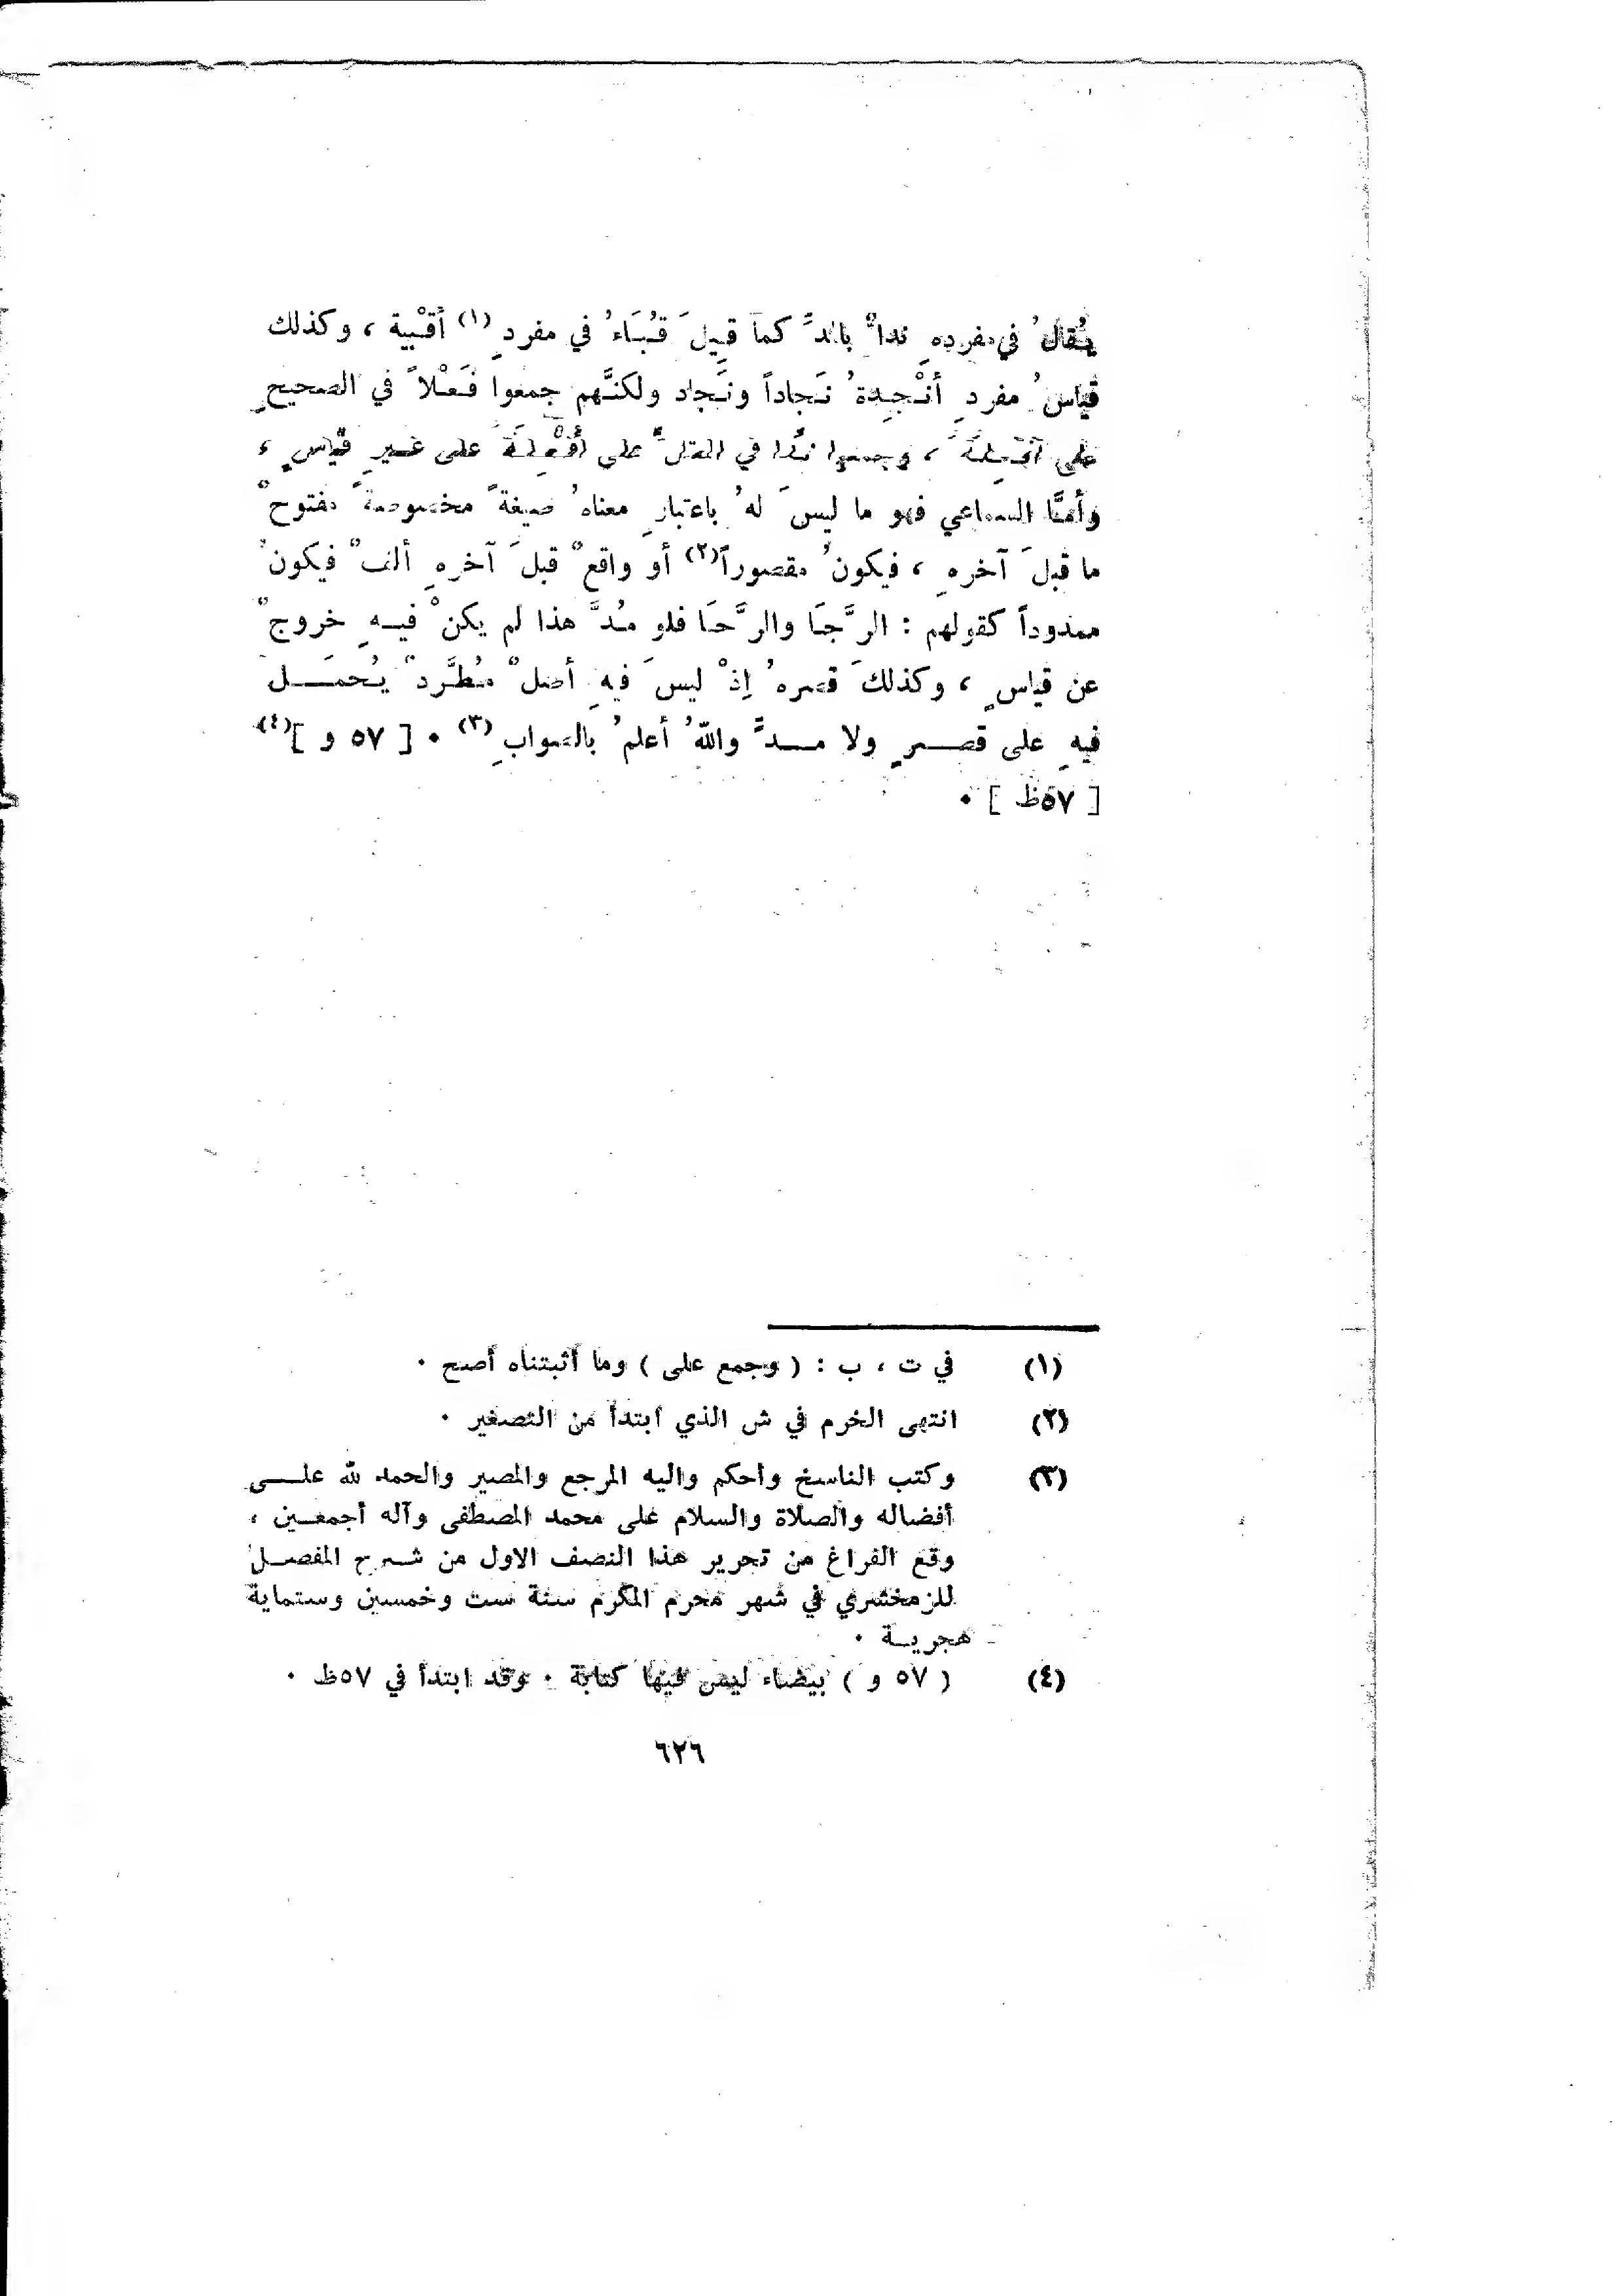 يُقالُ في مفردِهِ نداءٌ بالمدِّ كما قِيلَ قُبَاءُ في مفردِ (١) أقْبية ، وكذلك
قياسُ مفردِ أنْجِدةُ نَجاداً ونَجاد ولكنَّهم جمعوا فَعْلاً في الصحيحِ
على أفْعِلَةَ ، وجمعوا ندًا في المعتلِّ على أفْعِلَةَ على غـيرِ قياسٍ ،
وأمَّا السماعي فهو ما ليسَ لهُ باعتبارِ معناهُ صيغةً مخصوصةً مفتوحٌ
ما قبلَ آخرِهِ ، فيكونُ مقصوراً (٢) أو واقعٌ قبلَ آخرِهِ ألفٌ فيكونُ
ممدوداً كقولهم : الرَّجَا والرَّحَا فلو مُدَّ هذا لم يكنْ فيـهِ خروجٌ
عن قياسٍ ، وكذلكَ قصرهُ إذْ ليسَ فيهِ أصلٌ مُطَّردٌ يُحمَـــل
فيهِ على قصـــرٍ ولا مـــدٍّ واللهُ أعلمُ بالصوابِ (٣) ٠ [ ٥٧ و ](٤)
[ ٥٧ظ ] ٠
(١) في ت ، ب : ( وجمع على ) وما أثبتناه أصح ٠
(٢) انتهى الخرم في ش الذي ابتدأ من التصغير ٠
(٣) وكتب الناسخ واحكم واليه المرجع والمصير والحمد لله علـــى
أفضاله والصلاة والسلام على محمد المصطفى وآله أجمعـين ،
وقع الفراغ من تحرير هذا النصف الاول من شـرح المفصـل
للزمخشري في شهر محرم المكرم سنة ست وخمسين وستماية
هجريـة ٠
(٤) ( ٥٧ و ) بيضاء ليس فيها كتابة ٠ وقد ابتدأ في ٥٧ظ ٠
٦٢٦